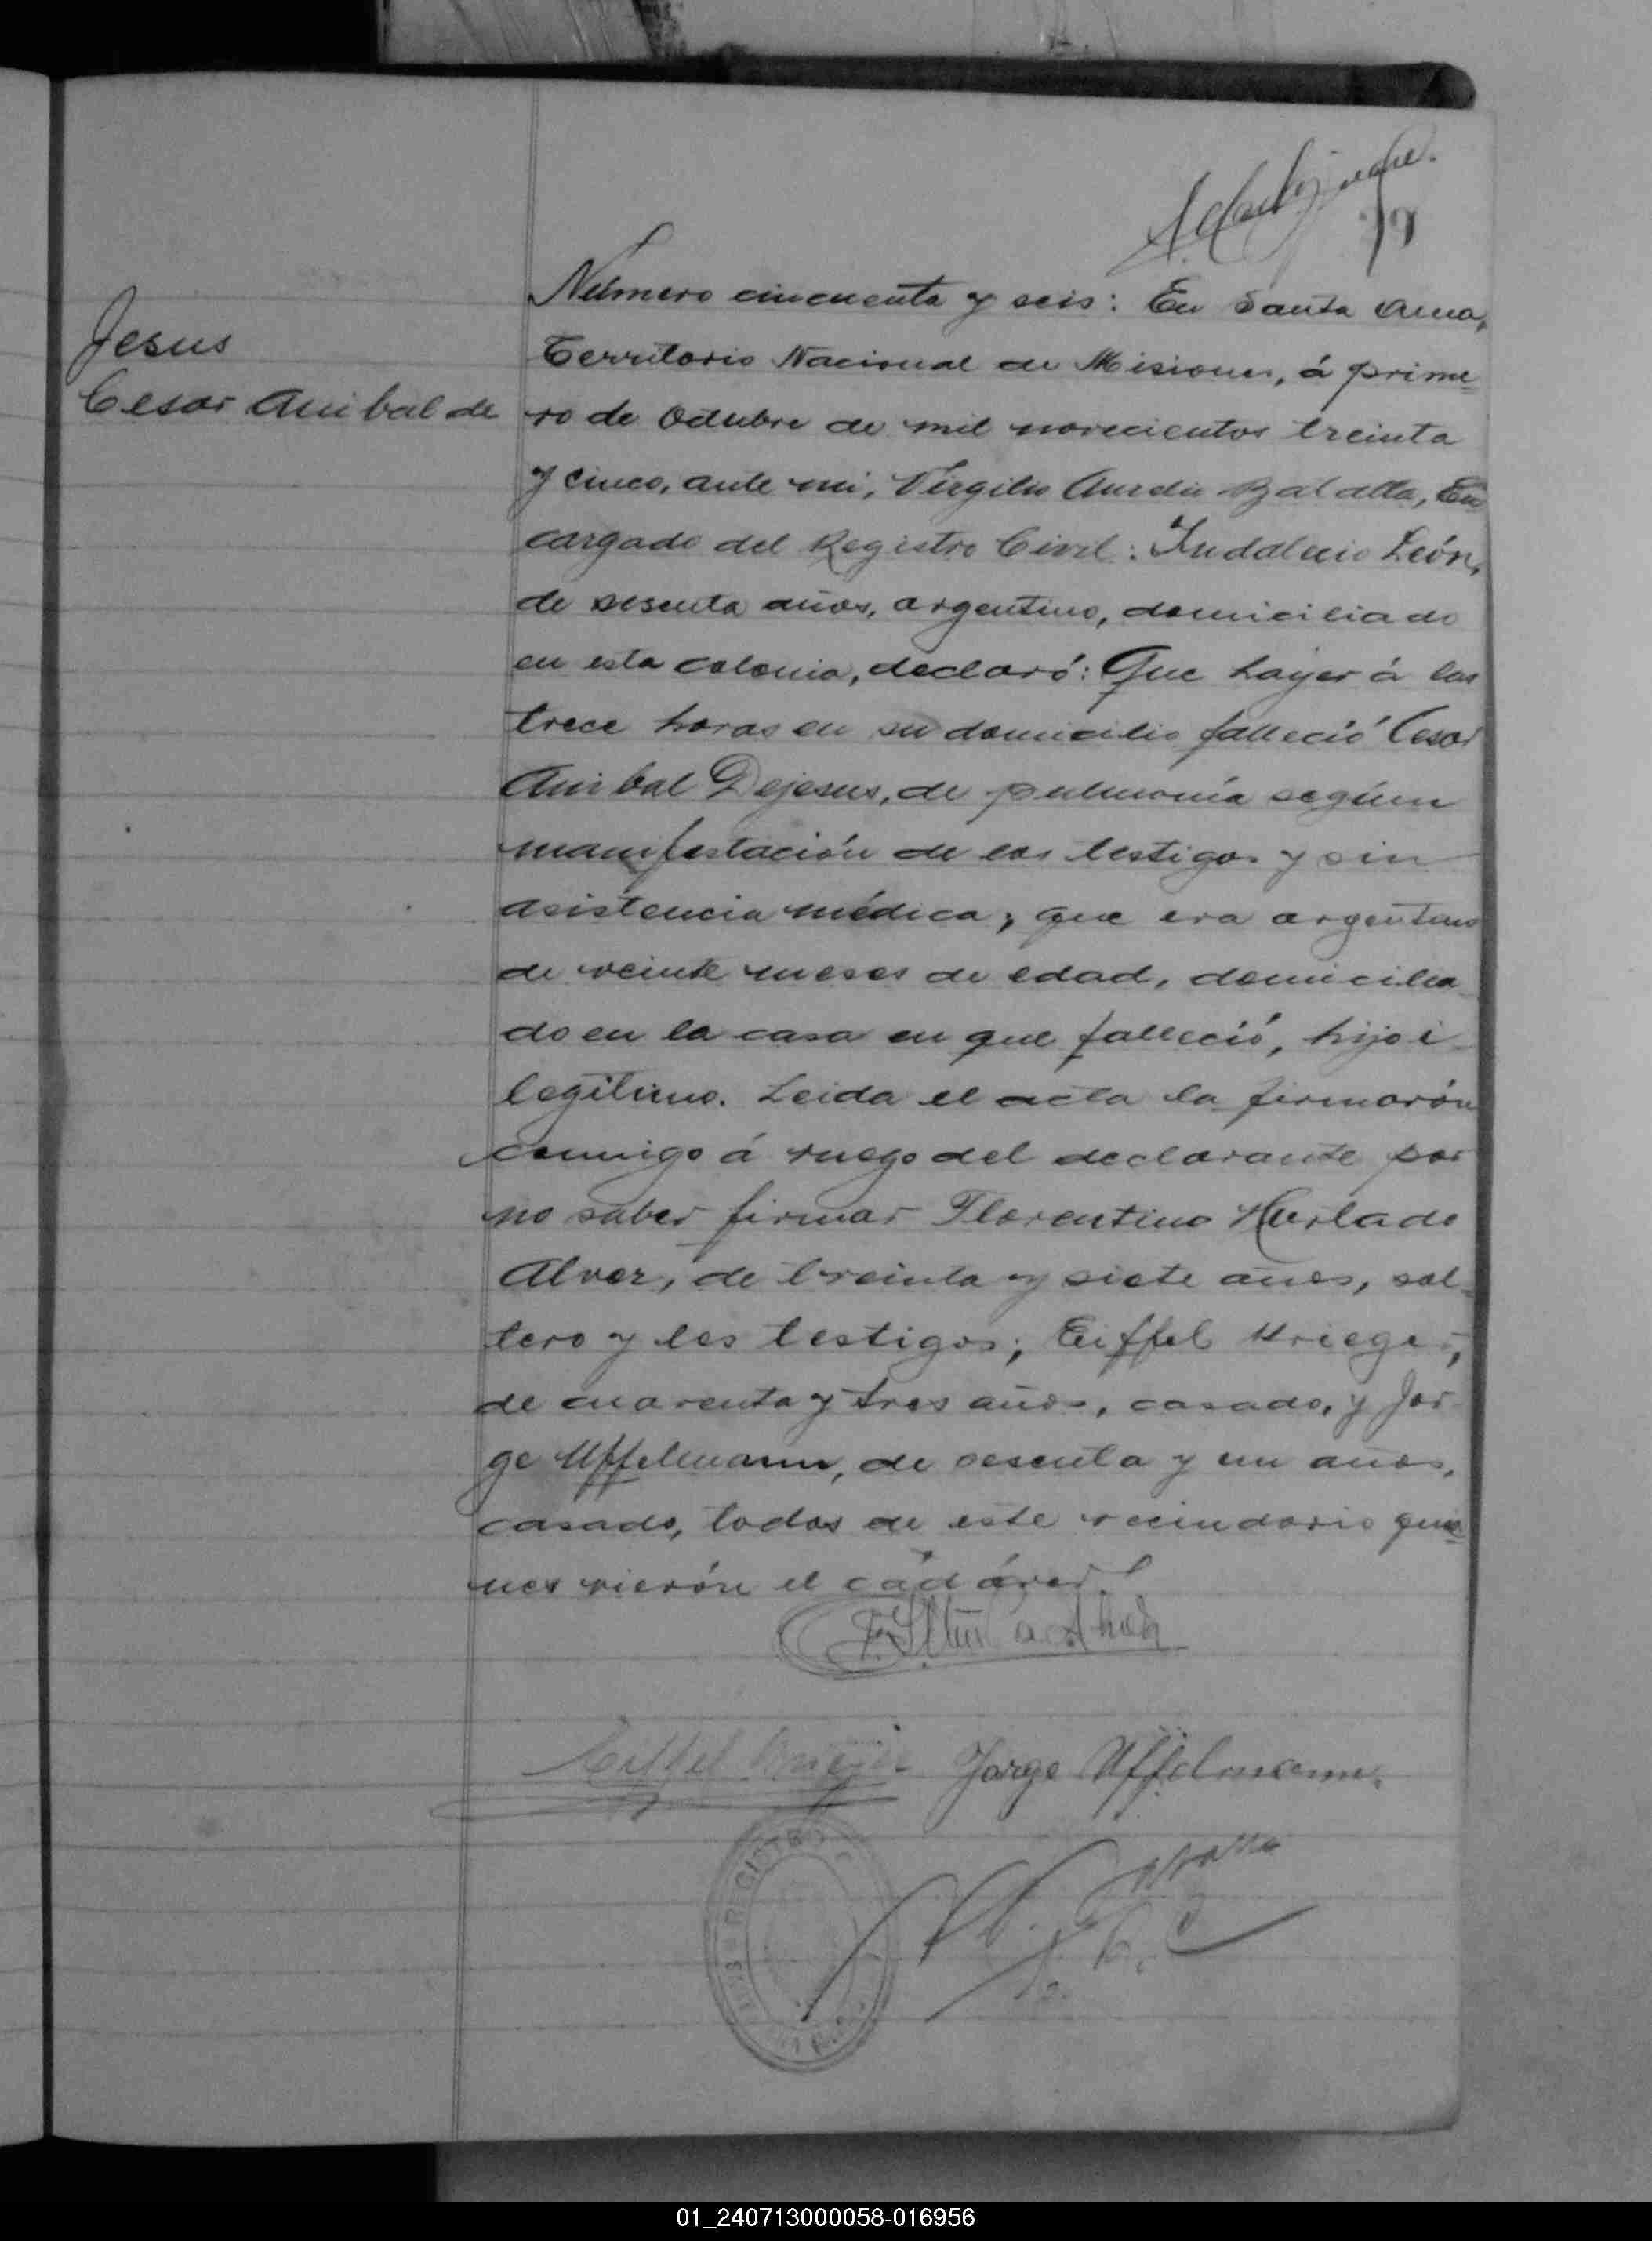 59
Jesus
Cesar Anibal de
Número cincuenta y seis: En Santa Ana,
Territorio Nacional de Misiones, á prime
ro de Octubre de mil novecientos treinta
y cinco, ante mi, Virgilio Aurelio Batalla, En
cargado del Registro Civil: Indalecio León,
de sesenta años, argentino, domiciliado
en esta colonia, declaró: Que hayer á las
trece horas en su domicilio falleció Cesar
Anibal Dejesus, de pulmonía segúm
manifestación de los testigos y sin
asistencia médica; que era argentino
de veinte meses de edad, domicilia
do en la casa en que falleció, hijo i-
legítimo. Leida el acta la firmarón
conmigo á ruego del declarante por
no saber firmar Florentino Hurtado
Alvez, de treinta y siete años, sol-
tero y los testigos; Eiffel Krieger,
de cuarenta y tres años, casado, y Jor
ge Uffelmann, de sesenta y un años,
casado, todos de este vecindario quie
nes vierón el cadáver.
Eiffel Krieger Jorge Uffelmann.
REGISTRO
01_240713000058-016956